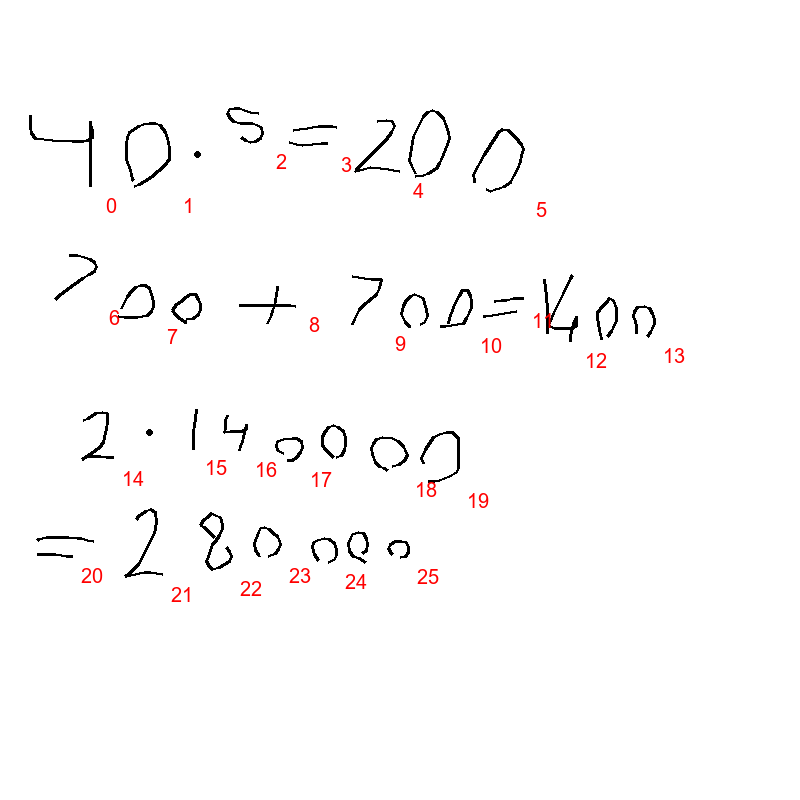 40 · 5 = 200
0 1 2 3 4 5
700 + 700 = 1400
6 7 8 9 10 11 12 13
2 · 140000
14 15 16 17 18 19
= 280000
20 21 22 23 24 25